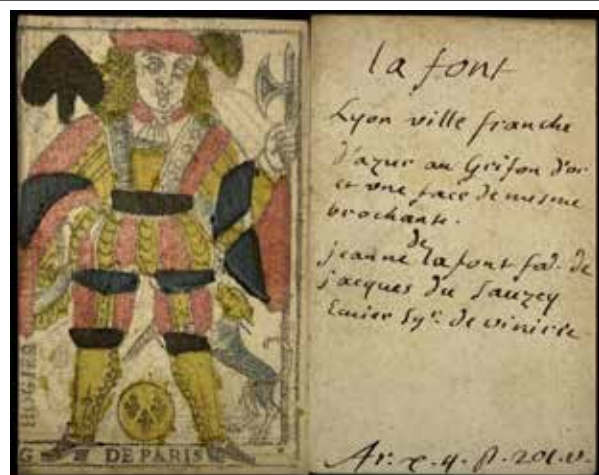 HOGIER
G DE PARIS
la font
Lyon ville franche
d'azur au Grifon d'or
et une face de mesme
brochante.
de
jeanne la font fa. de
jacques du Sauzey
Ecuier Sgr. de
Ar. 201. v.